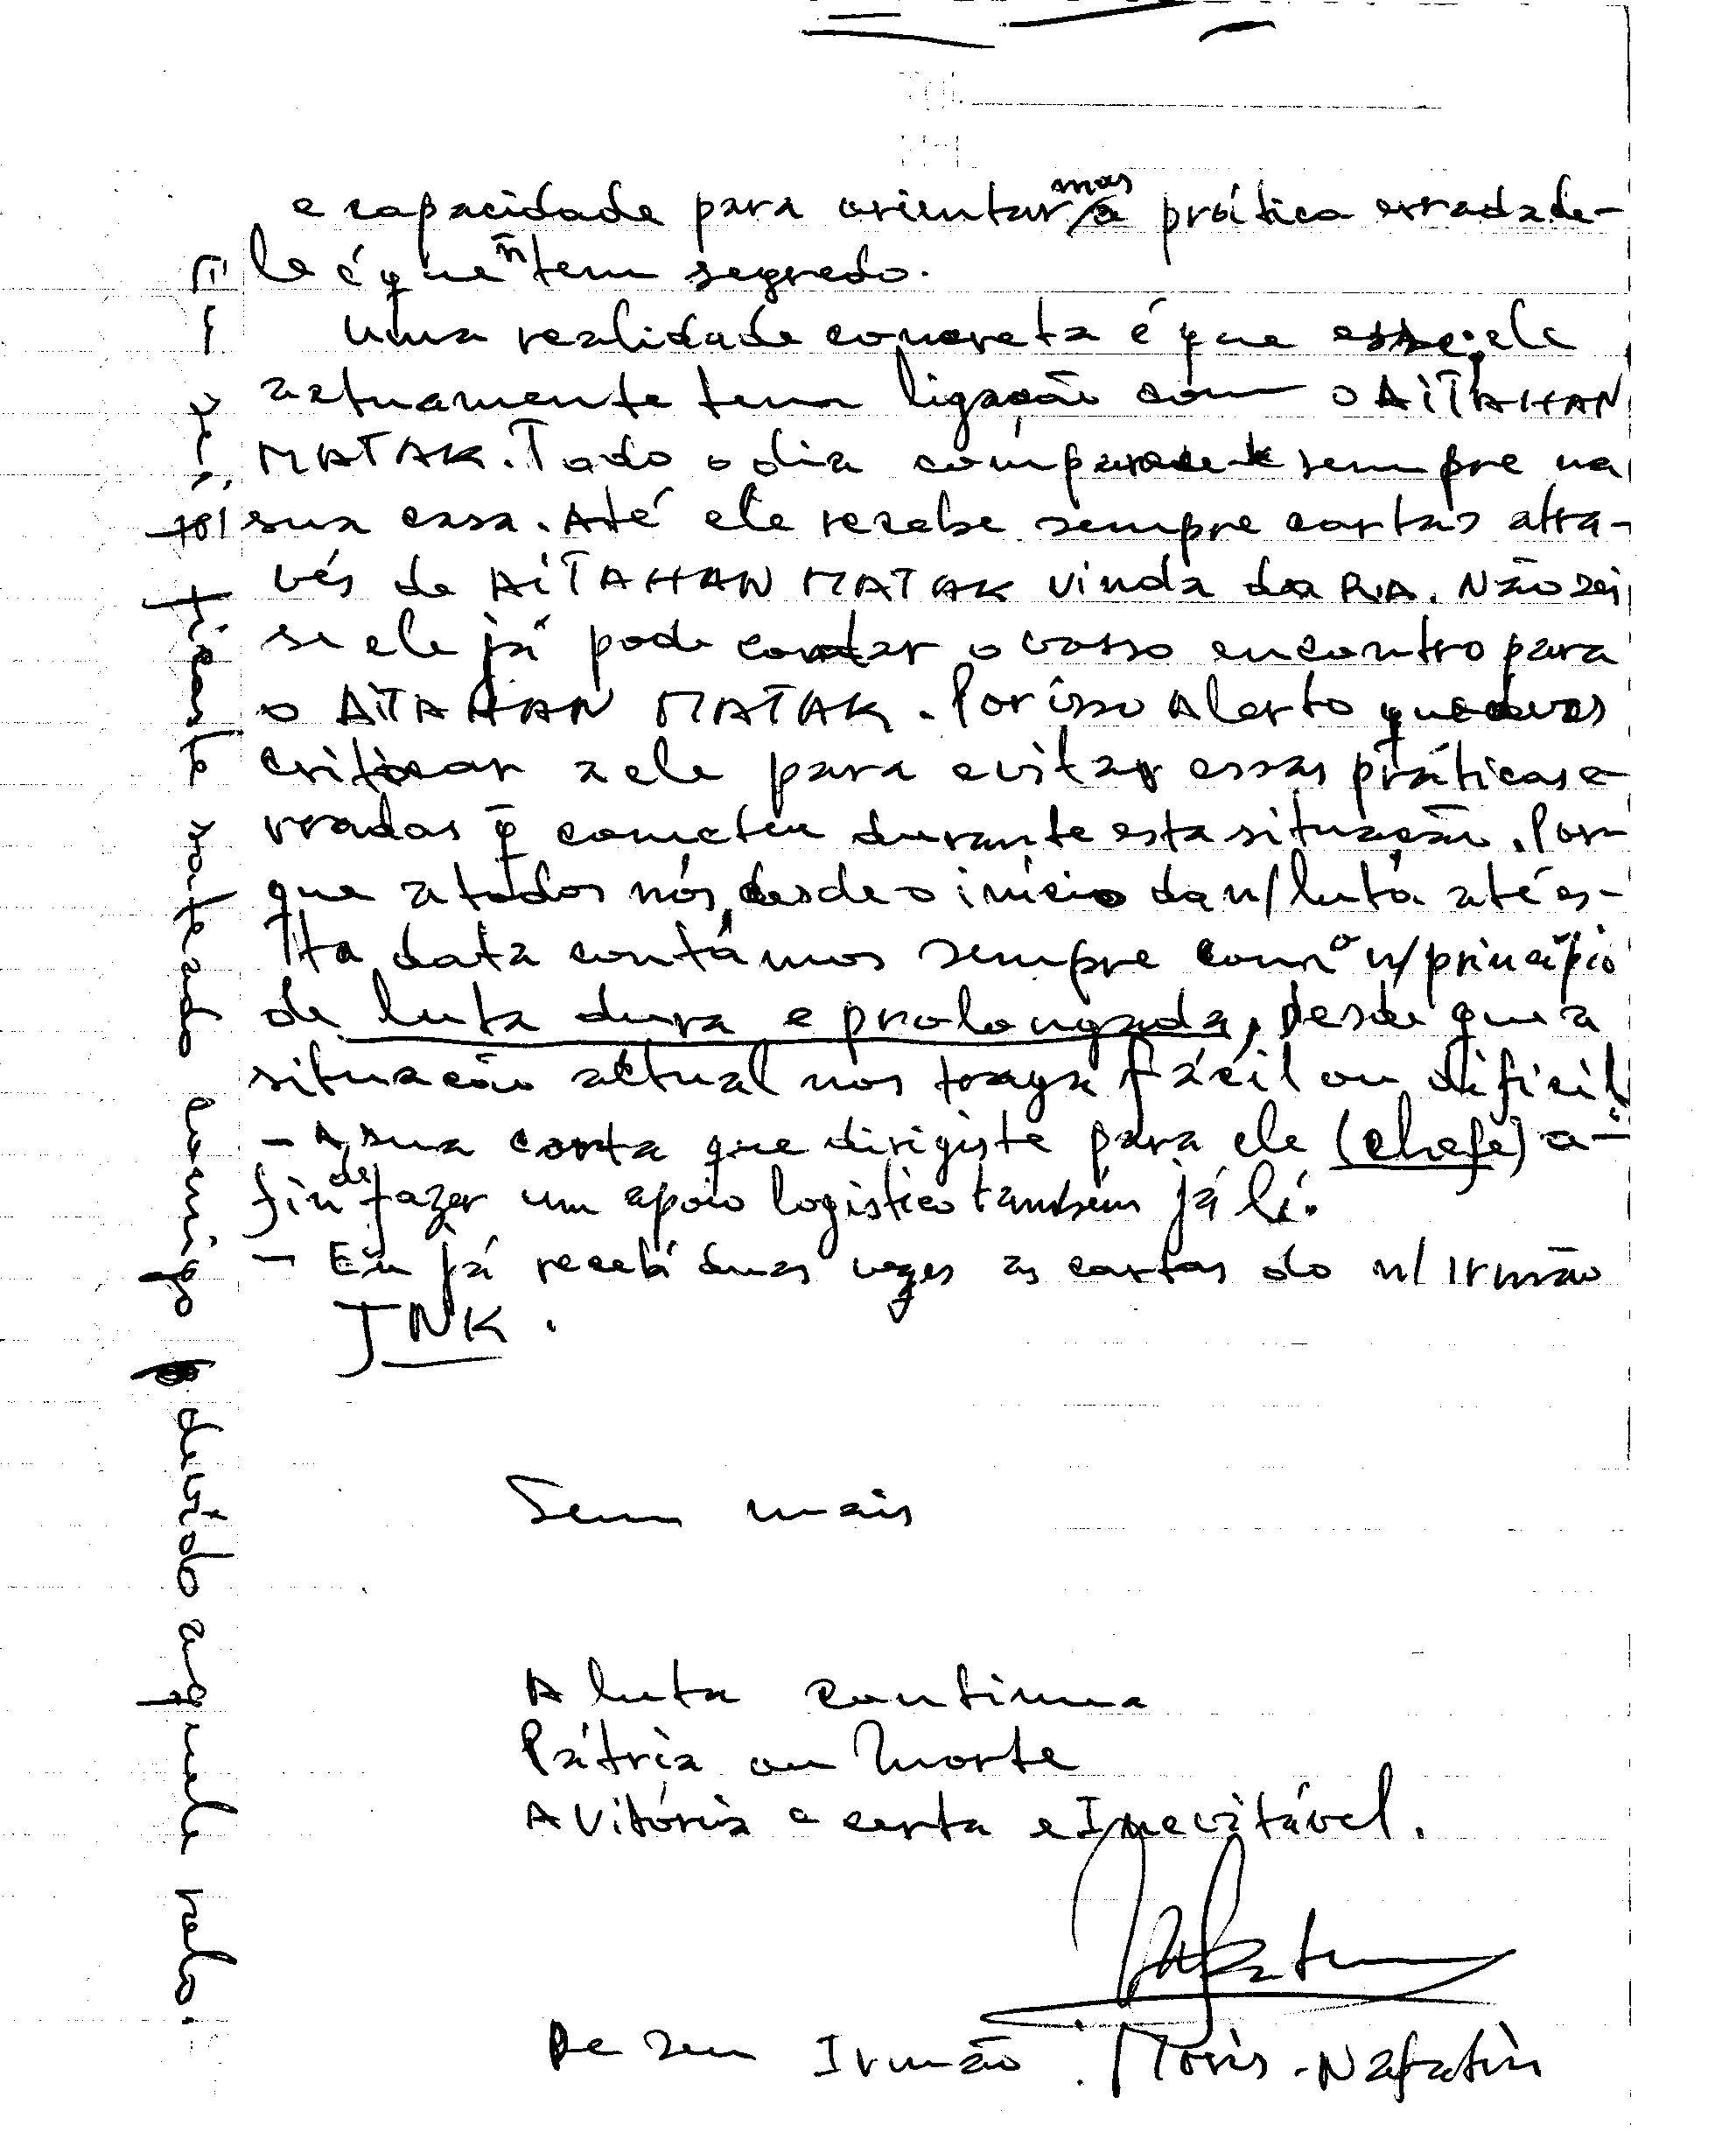 e capacidade para orientar mas a prática errada de-
le é que ñ tem segredo.
Uma realidade concreta é que esse, ele
actuamente tem ligação com o AITAHAN
MATAK. Todo o dia comparece sempre na
sua casa. Até ele recebe sempre cartas atra-
vés de AITAHAN MATAK vinda da R.A. Não sei
se ele já pode contar o vosso encontro para
o AITAHAN MATAK. Por isso Alerto que deves
criticar a ele para evitar essas práticas e-
rradas q̄ cometeu durante esta situação. Por-
que a todos nós, desde o início da n/luta até es-
ta data contámos sempre com o n/princípio
de luta dura e prolongada, desde que a
situação actual nos traga fácil ou difícil
- A sua carta que dirigiste para ele (chefe) a-
fim de fazer um apoio logístico também já li.
- Eu já recebi duas vezes as cartas do n/Irmão
JNK.
Sem mais
A luta continua
Pátria ou Morte
A Vitória é certa e Inevitável.
De seu Irmão. Moris-Nafatin
contacto comigo devido aquele relo.